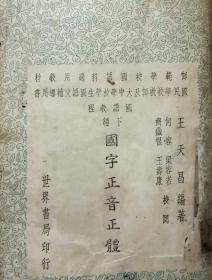 師範學校國語科適用教材
國民學校教師及大中學校學生國語文補充用書
國語教程
王天昌編著
何容 梁容若
齊鐵恨 王壽康
校閱
下編
國字正音正體
世界書局印行